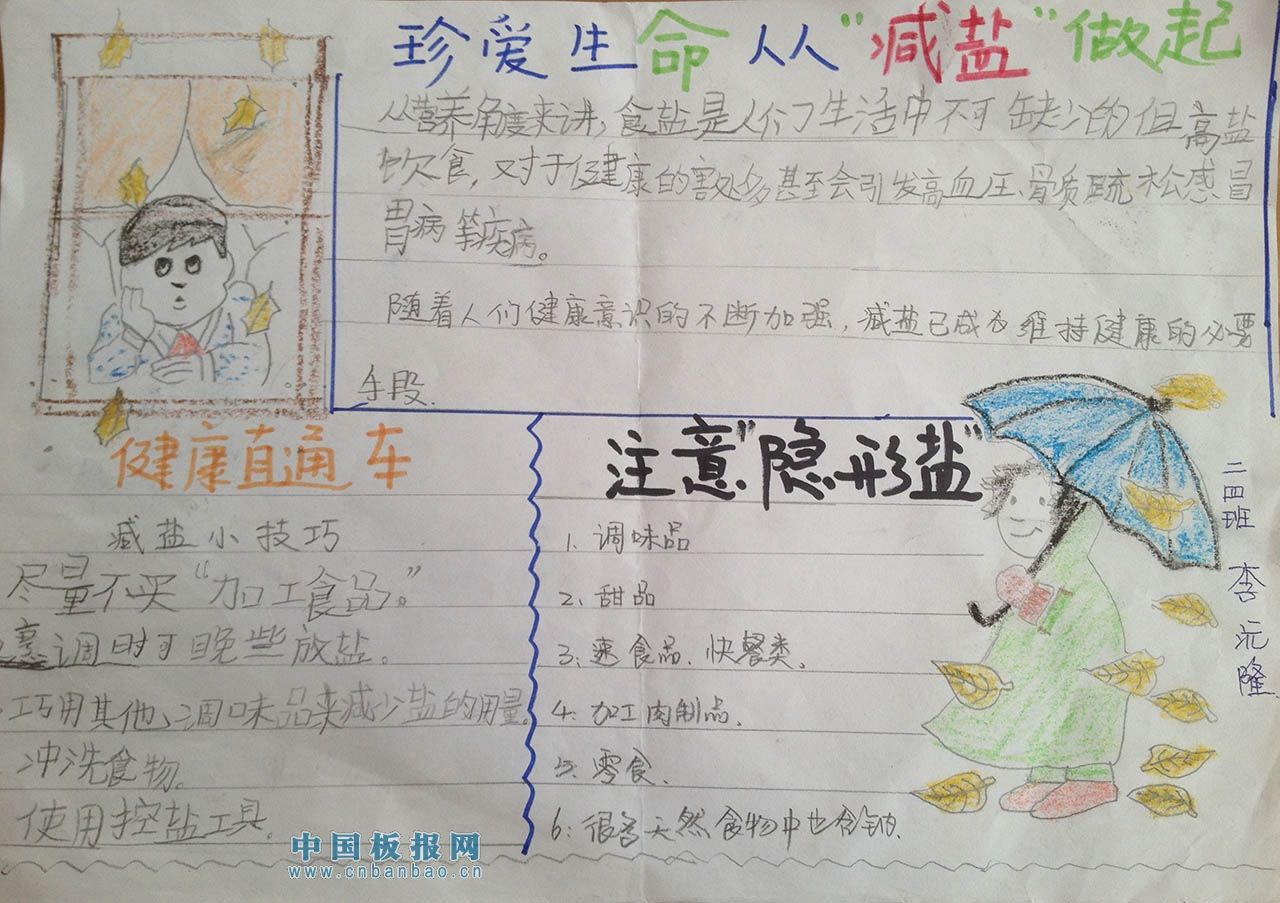 珍爱生命 从人"减盐"做起
从营养角度来讲,食盐是人们生活中不可缺少的但高盐
饮食,对于健康的害处多甚至会引发高血压、骨质疏松感冒
胃病等疾病。
随着人们健康意识的不断加强,减盐已成为维持健康的必要
手段.
健康直通车
减盐小技巧
尽量不买"加工食品。"
烹调时可晚些放盐。
巧用其他、调味品来减少盐的用量.
冲洗食物。
使用控盐工具.
注意"隐形盐"
1. 调味品
2. 甜品
3: 速食品. 快餐类.
4. 加工肉制品.
5: 零食.
6: 很多天然食物中也含钠.
二四班 李沅隆
中国板报网
www.cnbanbao.cn